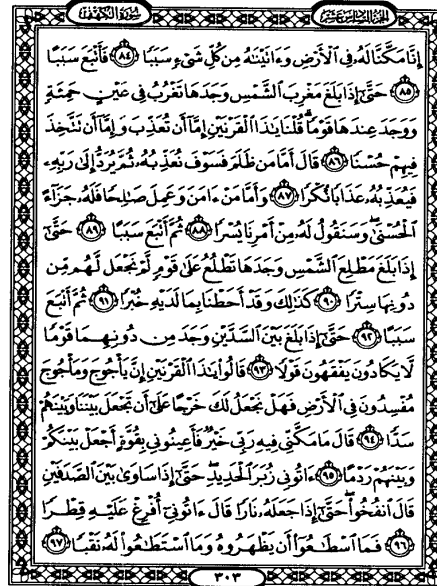 سورة الكهف
الجزء السادس عشر
إِنَّا مَكَّنَّا لَهُ فِي الْأَرْضِ وَءَاتَيْنَٰهُ مِن كُلِّ شَىْءٍ سَبَبًا ٨٤ فَأَتْبَعَ سَبَبًا
٨٥ حَتَّىٰ إِذَا بَلَغَ مَغْرِبَ الشَّمْسِ وَجَدَهَا تَغْرُبُ فِي عَيْنٍ حَمِئَةٍ
وَوَجَدَ عِندَهَا قَوْمًا قُلْنَا يَٰذَا الْقَرْنَيْنِ إِمَّا أَن تُعَذِّبَ وَإِمَّا أَن تَتَّخِذَ
فِيهِمْ حُسْنًا ٨٦ قَالَ أَمَّا مَن ظَلَمَ فَسَوْفَ نُعَذِّبُهُ ثُمَّ يُرَدُّ إِلَىٰ رَبِّهِ
فَيُعَذِّبُهُ عَذَابًا نُّكْرًا ٨٧ وَأَمَّا مَنْ ءَامَنَ وَعَمِلَ صَٰلِحًا فَلَهُ جَزَاءً
الْحُسْنَىٰ وَسَنَقُولُ لَهُ مِنْ أَمْرِنَا يُسْرًا ٨٨ ثُمَّ أَتْبَعَ سَبَبًا ٨٩ حَتَّىٰ
إِذَا بَلَغَ مَطْلِعَ الشَّمْسِ وَجَدَهَا تَطْلُعُ عَلَىٰ قَوْمٍ لَّمْ نَجْعَل لَّهُم مِّن
دُونِهَا سِتْرًا ٩٠ كَذَٰلِكَ وَقَدْ أَحَطْنَا بِمَا لَدَيْهِ خُبْرًا ٩١ ثُمَّ أَتْبَعَ
سَبَبًا ٩٢ حَتَّىٰ إِذَا بَلَغَ بَيْنَ السَّدَّيْنِ وَجَدَ مِن دُونِهِمَا قَوْمًا
لَّا يَكَادُونَ يَفْقَهُونَ قَوْلًا ٩٣ قَالُوا يَٰذَا الْقَرْنَيْنِ إِنَّ يَأْجُوجَ وَمَأْجُوجَ
مُفْسِدُونَ فِي الْأَرْضِ فَهَلْ نَجْعَلُ لَكَ خَرْجًا عَلَىٰ أَن تَجْعَلَ بَيْنَنَا وَبَيْنَهُمْ
سَدًّا ٩٤ قَالَ مَا مَكَّنِّي فِيهِ رَبِّي خَيْرٌ فَأَعِينُونِي بِقُوَّةٍ أَجْعَلْ بَيْنَكُمْ
وَبَيْنَهُمْ رَدْمًا ٩٥ ءَاتُونِي زُبَرَ الْحَدِيدِ حَتَّىٰ إِذَا سَاوَىٰ بَيْنَ الصَّدَفَيْنِ
قَالَ انفُخُوا حَتَّىٰ إِذَا جَعَلَهُ نَارًا قَالَ ءَاتُونِي أُفْرِغْ عَلَيْهِ قِطْرًا
٩٦ فَمَا اسْطَٰعُوا أَن يَظْهَرُوهُ وَمَا اسْتَطَٰعُوا لَهُ نَقْبًا ٩٧
٣٠٣